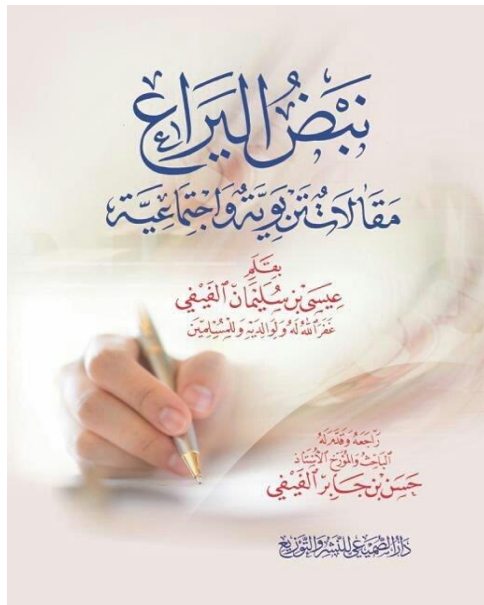 نَبْضُ اليَرَاعِ
مَقَالَاتٌ تَرْبَوِيَّةٌ وَاجْتِمَاعِيَّةٌ
بِقَلَمِ
عِيسَى بْنِ سُلَيْمَانَ الفَيْفِي
غَفَرَ اللهُ لَهُ وَلِوَالِدَيْهِ وَلِلْمُسْلِمِينَ
رَاجَعَهُ وَقَدَّمَ لَهُ
البَاحِثُ وَالمُؤَرِّخُ الأُسْتَاذُ
حَسَنُ بْنُ جَابِرٍ الفَيْفِي
دَارُ الصُّمَيْعِي لِلنَّشْرِ وَالتَّوْزِيعِ